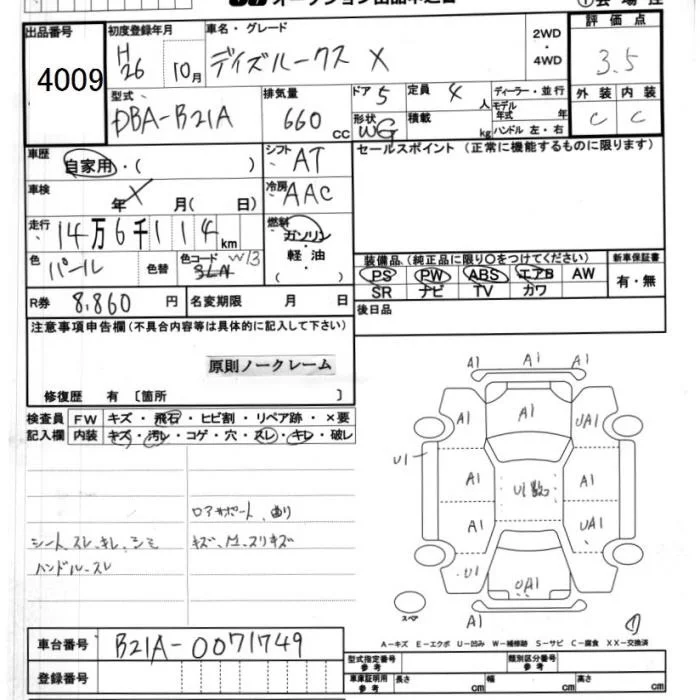 オークション出品申込書
出品番号 4009
初度登録年月 H26 10月
車名・グレード デイズルークス X
2WD・4WD
評価点 3.5
型式 DBA-B21A
排気量 660 CC
ドア 5
形状 WG
定員 4 人
積載 kg
ディーラー・並行
モデル年式 年
ハンドル 左・右
外装 C
内装 C
車歴 自家用・( )
シフト AT
セールスポイント (正常に機能するものに限ります)
車検 年 X 月( 日)
冷房 AAC
走行 14万6千114 km
燃料 ガソリン
軽・油
( )
色 パール
色替
色コード W13
装備品 (純正品に限り○をつけてください)
新車保証書
PS PW ABS エアB AW
SR ナビ TV カワ
有・無
R券 8,860 円
名変期限 月 日
後日品
注意事項申告欄 (不具合内容等は具体的に記入して下さい)
原則ノークレーム
修復歴 有 〔箇所 〕
検査員記入欄
FW キズ・飛石・ヒビ割・リペア跡・×要
内装 キズ・汚レ・コゲ・穴・スレ・キレ・破レ
A1 A1 A1
A1 A1 UA1
U1 A1 U1数コ A1
A1 UA1
U1 UA1
A1
ロアサポート 曲り
シートスレ、キレ、シミ
ハンドルスレ
スペア
A-キズ E-エクボ U-凹み W-補修跡 S-サビ C-腐食 XX-交換済
車台番号 B21A-0071749
登録番号
型式指定番号 参考
類別区分番号 参考
車庫証明用 参考
長さ cm 幅 cm 高さ cm